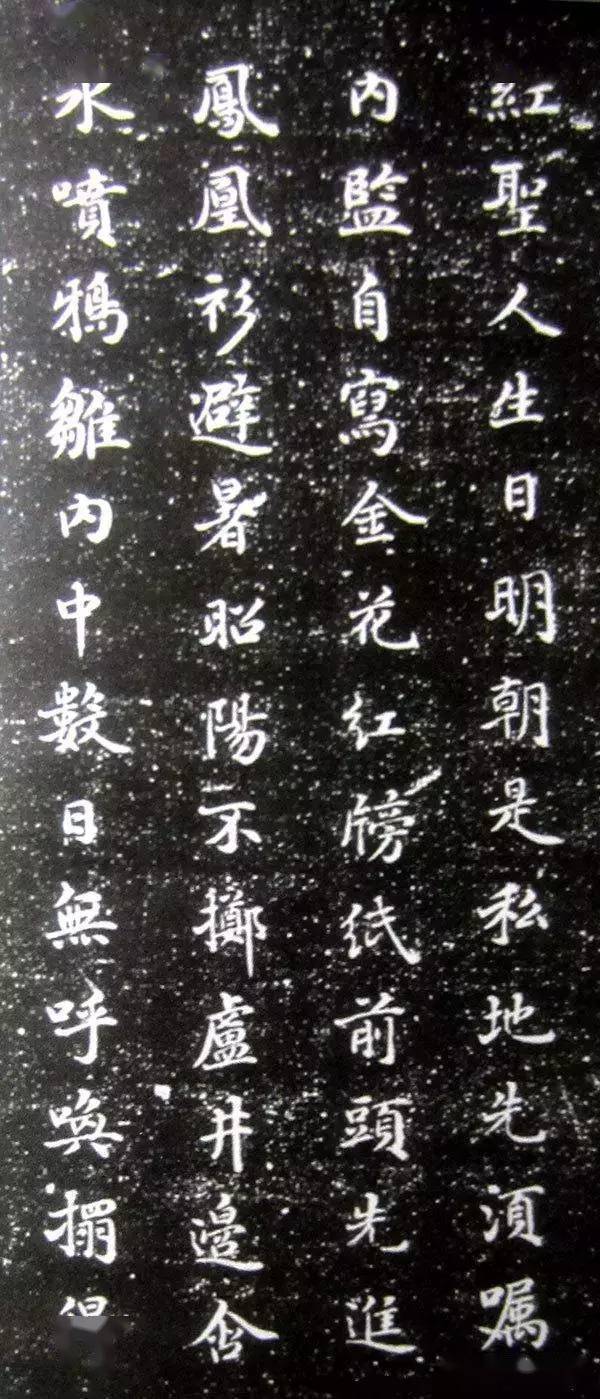 紅聖人生日明朝是私地先須嘱
内監自寫金花紅牓紙前頭先進
鳳凰衫避暑昭陽不擲盧井邊含
水噴鴉雛内中數日無呼喚搨得